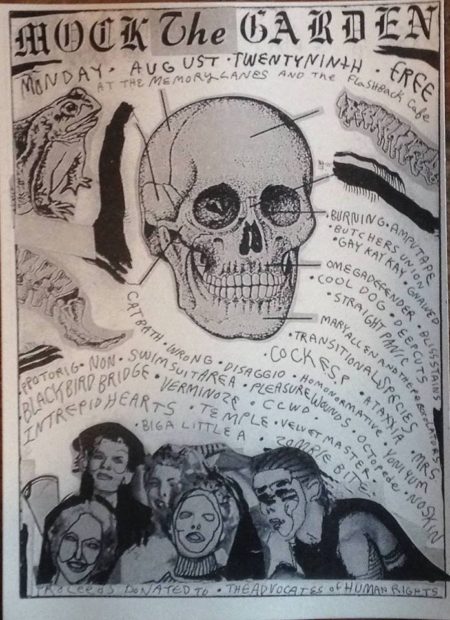 MOCK The GARDEN
MONDAY · AUGUST · TWENTYNINTH · FREE
AT THE MEMORY LANES AND THE FLASHBACK Cafe
· BURNING · AMPUTAPE
· BUTCHERS UNION
· GAY KAT KAY GNAWED
OMEGADEFENDER · BLISSSTAINS
· COOL DOG · DEEPCUTS
· STRAIGHTPANIC
MARY ALLEN AND THE PERPETRATORS
· TRANSITIONALSPECIES
COCKESP · ATAXXIA · MRS
CATBATH · WRONG · DISAGGIO · HOMONORMATIVE · YONIYUM
PPOTORIG · NON · SWIMSUITAREA · PLEASUREWOUNDS · OCTOPODE · NOSKIN
BLACKBIRD BRIDGE · VERMINOZE · CCWD · VELVET MASTER
INTREPID HEARTS · TEMPLE · ZOMBIE BITE
· BIGA LITTLE A
PROCEEDS DONATED TO · THE ADVOCATES OF HUMAN RIGHTS